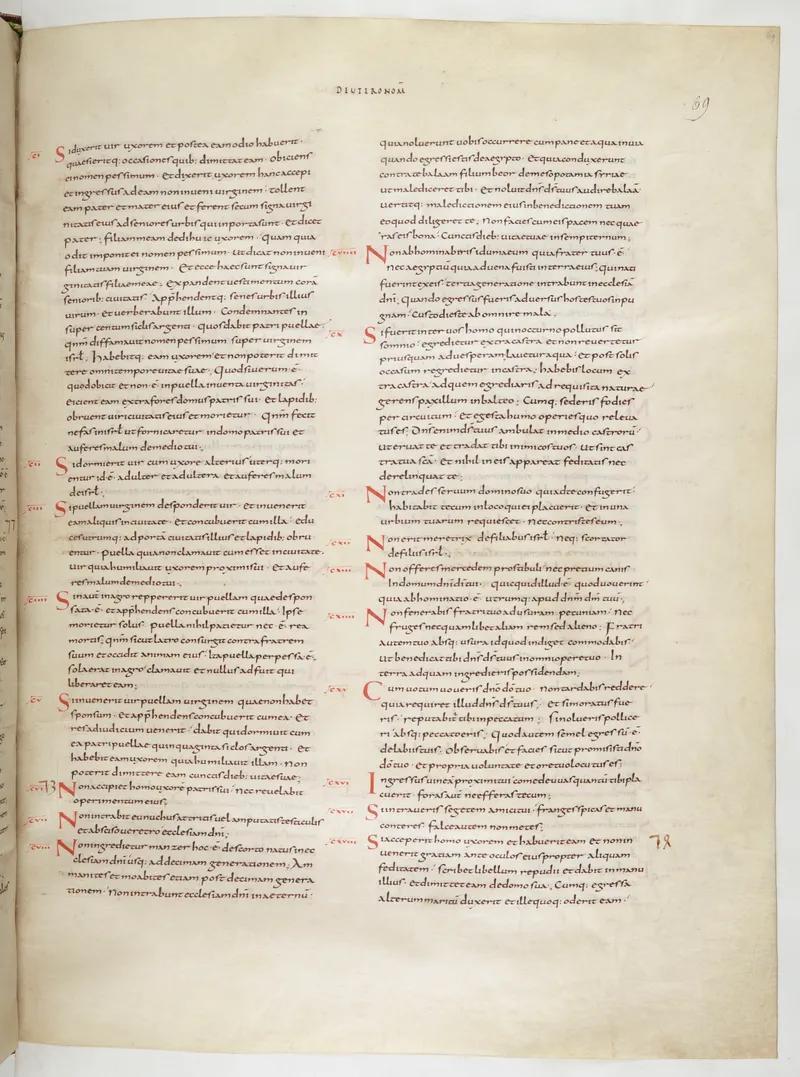 DEUTERONOM̄
69
.ci.
Si duxerit uir uxorem et postea eam odio habuerit·
quaesieritq: occasiones quib: dimittat eam· obiciens
ei nomen pessimum· Et dixerit uxorem hanc accepi
et ingressus ad eam non inueni uirginem· tollent
eam pater et mater eius et ferent secum signa uirgi
nitatis eius ad seniores urbis qui in porta sunt· et dicet
pater; filiam meam dedi huic uxorem· quam quia
odit imponit ei nomen pessimum· ut dicat non inueni
filiam tuam uirginem· Et ecce haec sunt signa uir
ginitatis filiae meae; expandent uestimentum corā
seniorib: ciuitatis· App̄hendentq: senes urbis illius
uirum· et uerberabunt illum· Condemnantes in
super centum siclis argenti· quos dabit patri puellae;
qnm̄ diffamauit nomen pessimum super uirginem
isrł; habebitq: eam uxorem et non poterit dimit
tere omni tempore uitae suae; Quod si uerum· ē·
quod obicit et non· ē· in puella inuenta uirginitas·
eicient eam extra fores domus patris sui· et lapidib:
obruent uiri ciuitatis eius et morietur· Qnm̄ fecit
nefas in isrł ut fornicaretur in domo patris sui et
auferes malum de medio tui;
.cii.
Si dormierit uir cum uxore alterius uterq: mori
entur id·ē· adulter et adultera· et auferes malum
de isrł·;
.ciii.
Si puellam uirginem desponderit uir· et inuenerit
eam aliquis in ciuitate· et concubuerit cum illa· edu
ces utrumq: ad portā ciuitatis illius et lapidib: obru
entur· puella quia non clamauit cum esset in ciuitate·
uir quia humiliauit uxorem proximi sui· Et aufe
res malum de medio tui·;
.ciiii.
Sin aut̄ in agro reppererit uir puellam quae despon
sata·ē· et app̄hendens concubuerit cum illa· Ipse
morietur solus· puella nihil patietur nec· ē· rea
mortis; qnm̄ sicut latro consurgit contra fratrem
suum et occidit animam eius· Ita puella perpessa·ē·;
sola erat in agro clamauit et nullus adfuit qui
liberaret eam;
.cv.
Si inuenerit uir puellam uirginem quae non habet
sponsum· et app̄hendens concubuerit cum ea· et
res ad iudicium uenerit· dabit qui dormiuit cum
ea patri puellae quinquaginta siclos argenti· et
habebit eam uxorem quia humiliauit illam· non
poterit dimittere eam cunctis dieb: uitae suae;
.cvi. 73
Non accipiet homo uxorem patris sui· nec reuelabit
operimentum eius;
.cvii.
Non intrabit eunuchus attritis uel amputatis testiculis
et absciso ueretro ecclesiam dnī;
.cviii.
Non ingredietur manzer hoc·ē· de scorto natus in ec
clesiam dnī usq: ad decimam generationem; Am
manites et moabites etiam post decimam genera
tionem· Non intrabunt ecclesiam dnī in aeternū·
quia noluerunt uobis occurrere cum pane et aqua in uia
quando egressi estis de aegypto· Et quia conduxerunt
contra te balaam filium beor de mesopotamia syriae·
ut malediceret tibi· et noluit dn̄s d̄s tuus audire balaā·
uertitq: maledictionem eius in benedictionem tuam
eo quod diligeret te; Non facies cum eis pacem nec quae
ras eis bona· Cunctis dieb: uitae tuae in sempiternum;
.cviiii.
Non abhominaberis idumaeum quia frater tuus·ē·
nec aegyptiū quia aduena fuisti in terra eius; qui nati
fuerint ex eis· tertia generatione intrabunt in ecclesiā
dnī; Quando egressus fueris aduersus hostes tuos in pu
gnam· Custodies te ab omni re mala·;
.cx.
Si fuerit inter uos homo qui nocturno pollutus sit
somnio· egredietur extra castra· et non reuertetur·
priusquam ad uesperam lauetur aqua· et post solis
occasum regredietur in castra; habebis locum ex
tra castra ad quem egrediaris ad requisita naturae·
gerens paxillum in balteo; Cumq: sederis fodies
per circuitum· Et egesta humo operies quo releua
tus es; Dn̄s enim d̄s tuus ambulat in medio castrorū·
ut eruat te· et tradat tibi inimicos tuos· Ut sint cas
tra tua sc̄a· et nihil in eis appareat feditatis nec
derelinquat te·;
.cxi.
Non trades seruum domino suo qui ad te confugerit·
habitabit tecum in loco qui ei placuerit· et in una
urbium tuarum requiescet· nec contristes eum·;
.cxii.
Non erit meretrix de filiabus isrł· neq: scortator
de filiis isrł·;
.cxiii.
Non offeres mercedem prostibuli nec pretium canis·
In domum dnī dī tui· quicquid illud·ē· quod uouerint·
quia abhominatio·ē· utrumq: apud dnm̄ dm̄ tuū·;
.cxiiii.
Non fenerabis fratri tuo ad usuram· pecuniam· nec
fruges nec quamlibet aliam rem sed alieno; Fratri
autem tuo absq: usura id quod indiget commodabis·
Ut benedicat tibi dn̄s d̄s tuus in omni opere tuo· In
terra ad quam ingredieris possidendam;
.cxv.
Cum uotum uoueris dn̄o dō tuo· non tardabis reddere·
quia requiret illud dn̄s d̄s tuus· Et si moratus fue
ris· reputabit tibi in peccatum; si nolueris pollice
ri absq: peccato eris; Quod autem semel egressū·ē·
de labiis tuis· obseruabis et facies sicut promisisti dn̄o
dō tuo· et propria uoluntate et ore tuo locutus es;
.cxvi.
Ingressus uineā proximi tui comede uuas quantū tibi pla
cuerit· foras aut̄ ne efferas tecum;
.cxvii.
Si intraueris segetem amici tui· franges spicas et manu
conteres· falce autem non metes;
.cxviii.
Si acceperit homo uxorem et habuerit eam et non in 78
uenerit gratiam ante oculos eius propter aliquam
feditatem· scribet libellum repudii et dabit in manu
illius· et dimittet eam de domo sua; Cumq: egressa
alterum maritū duxerit et ille quoq: oderit eam·